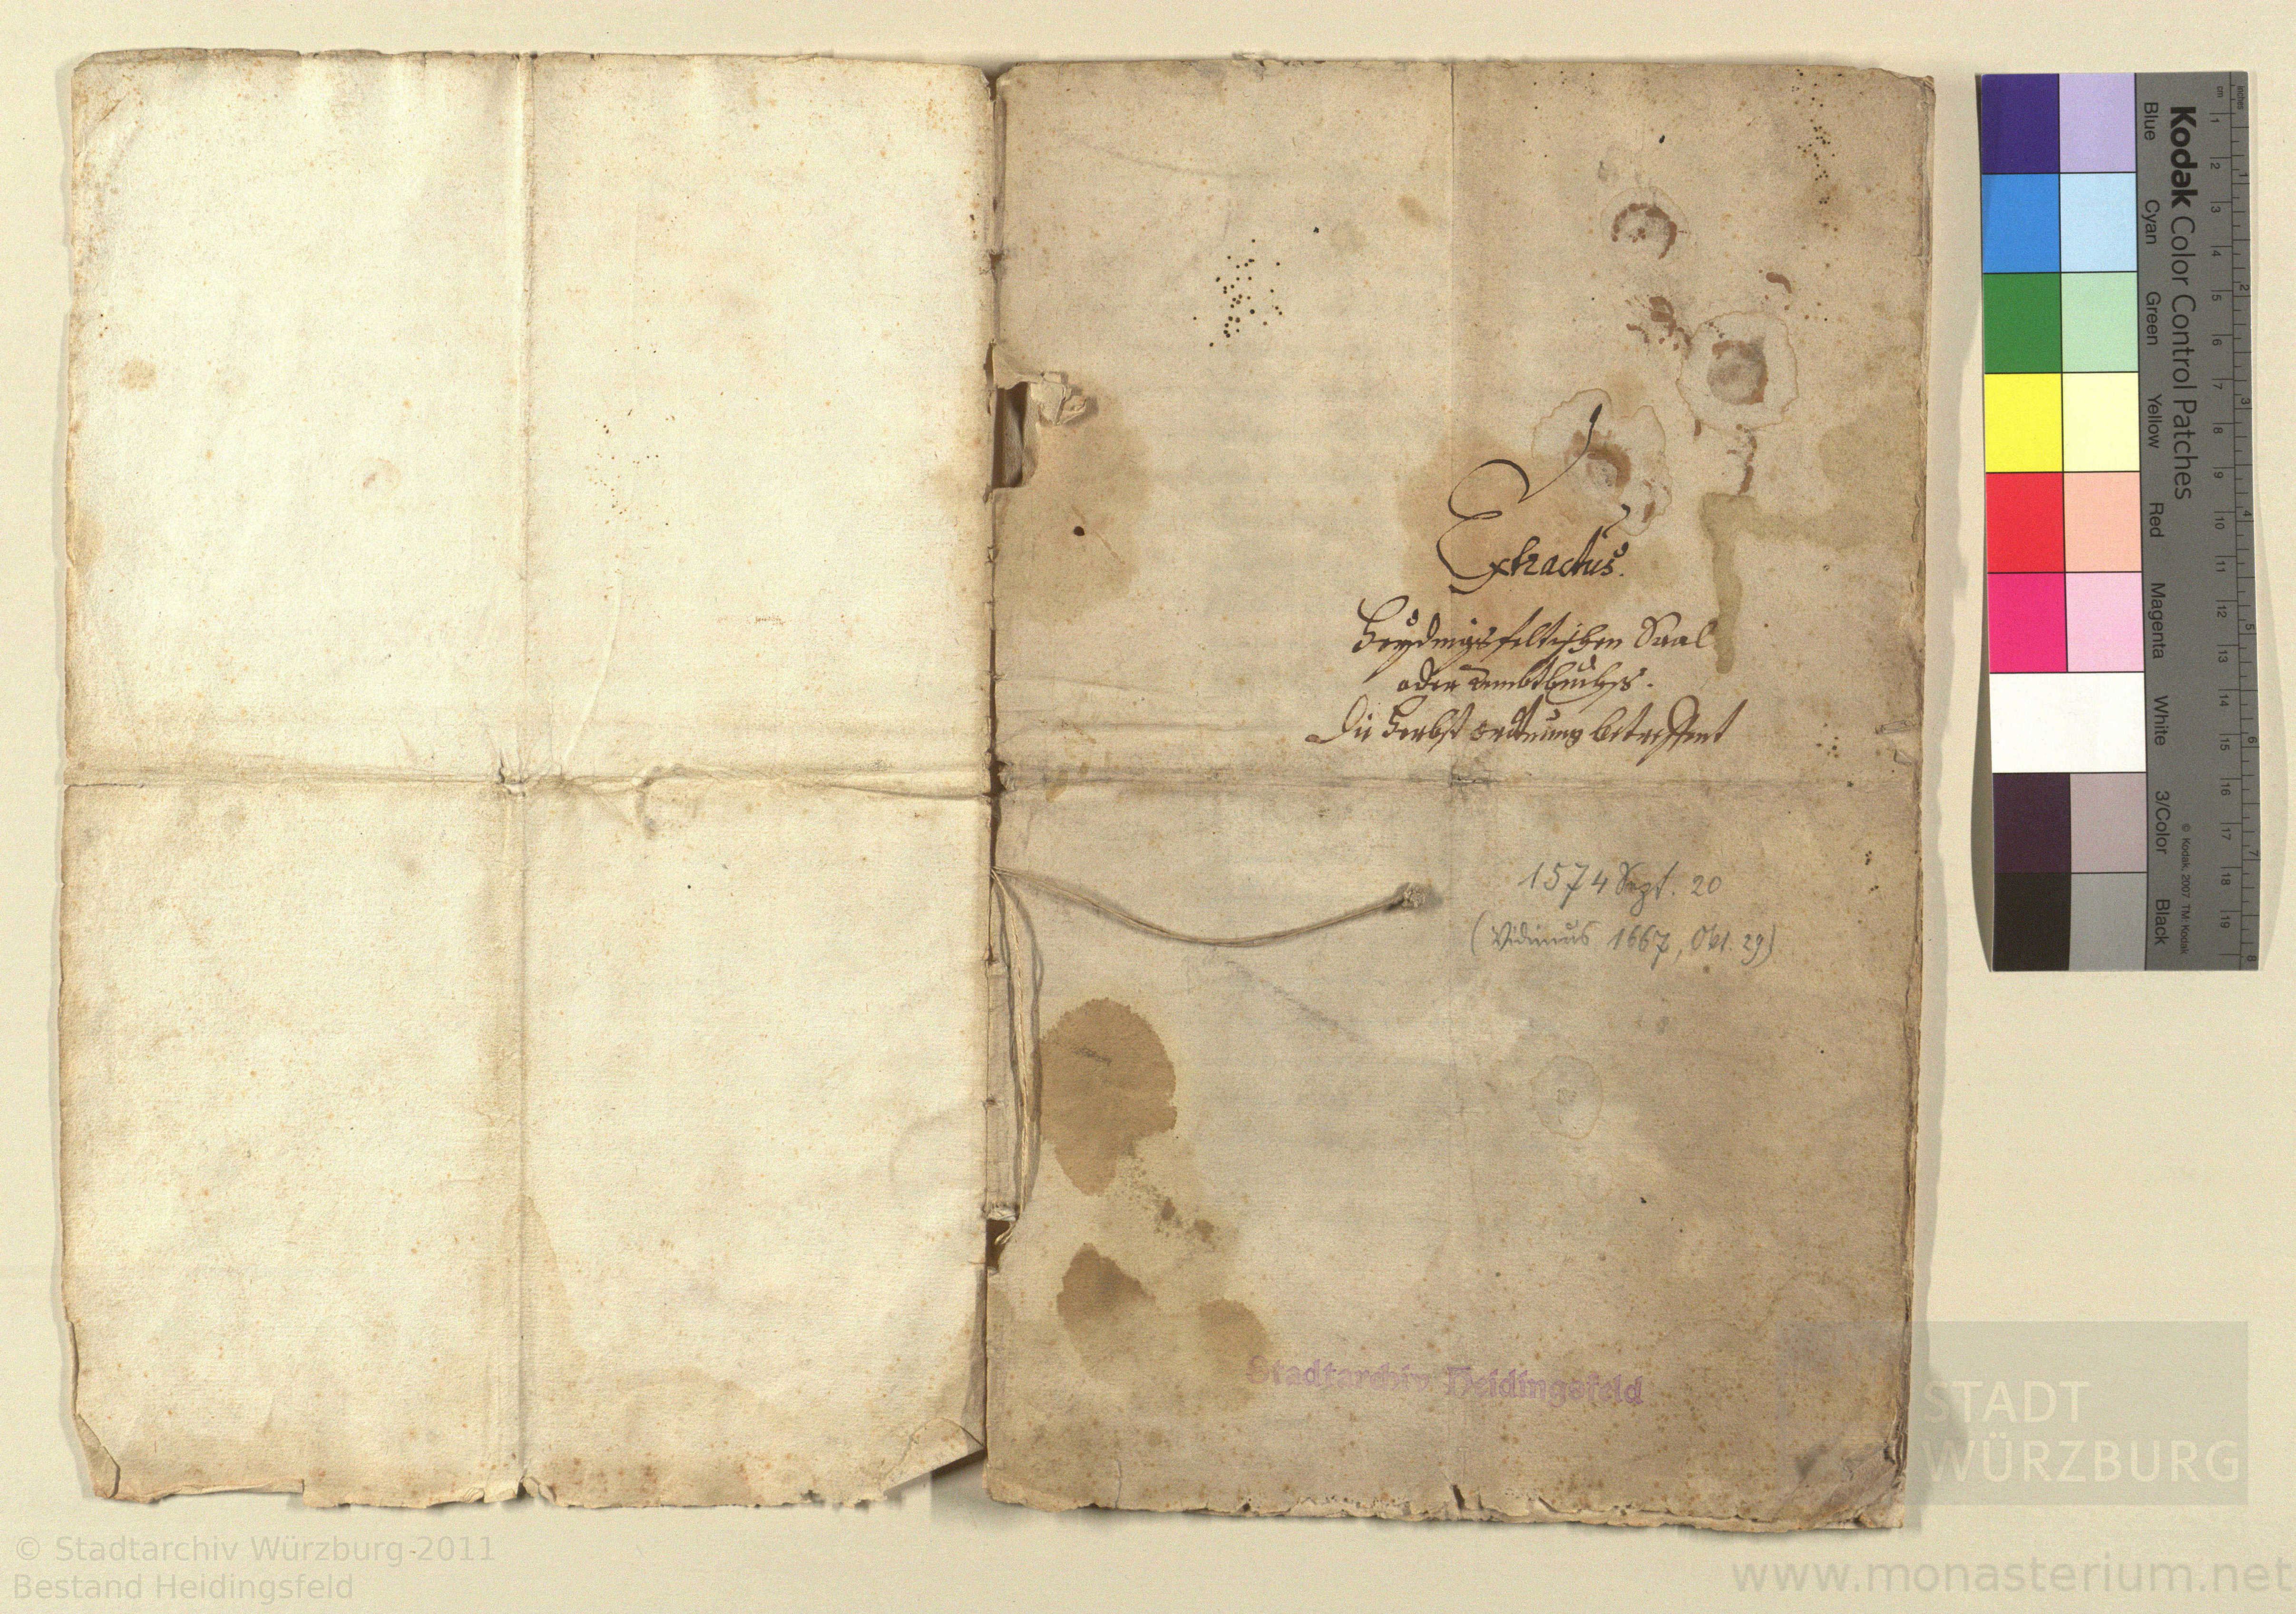 Extractus.
Heydingsfeltischen Saal
oder Ambtbuchs.
Die Herbst ordtnung betreffent
1574 Sept. 20
(Vidimus 1667, Okt. 29)
Stadtarchiv Heidingsfeld
Kodak Color Control Patches
Blue Cyan Green Yellow Red Magenta White 3/Color Black
© Kodak, 2007 TM: Kodak
inches
cm
1 2 3 4 5 6 7 8 9 10 11 12 13 14 15 16 17 18 19
1 2 3 4 5 6 7 8
STADT
WÜRZBURG
© Stadtarchiv Würzburg-2011
Bestand Heidingsfeld
www.monasterium.net